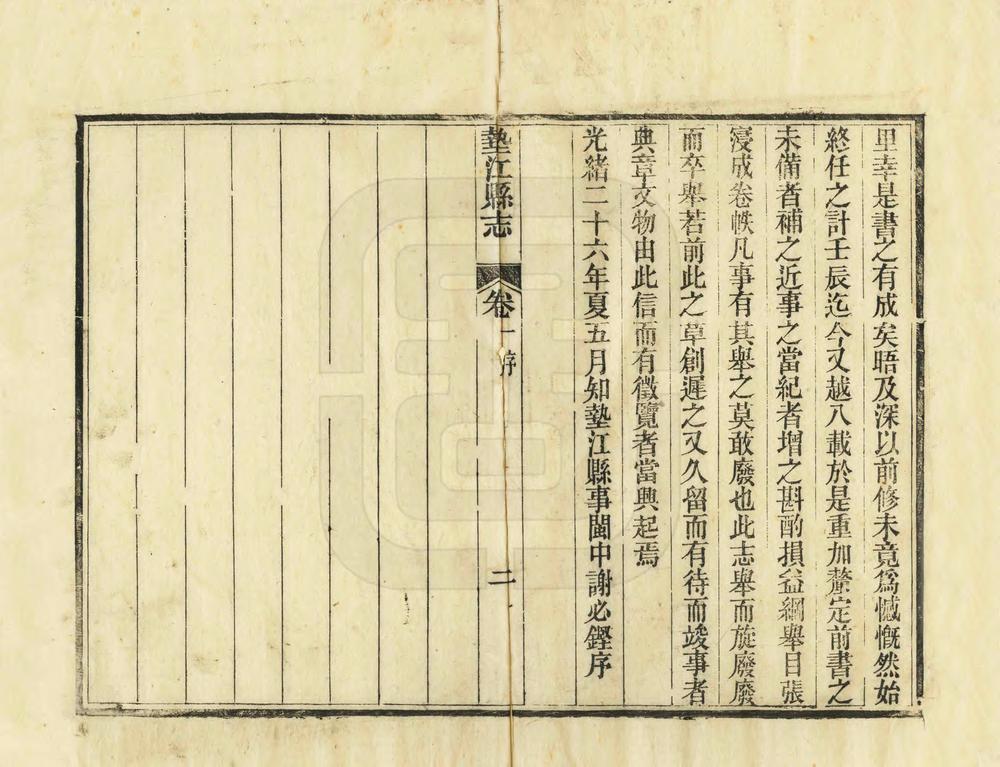 里幸是書之有成矣晤及深以前修未竟爲憾慨然始
終任之計壬辰迄今又越八載於是重加釐定前書之
未備者補之近事之當紀者增之斟酌損益綱舉目張
寖成卷帙凡事有其舉之莫敢廢也此志舉而旋廢廢
而卒舉若前此之草創遲之又久留而有待而竣事者
典章文物由此信而有徵覽者當興起焉
光緒二十六年夏五月知墊江縣事閩中謝必鏗序
墊江縣志
卷一
序
二